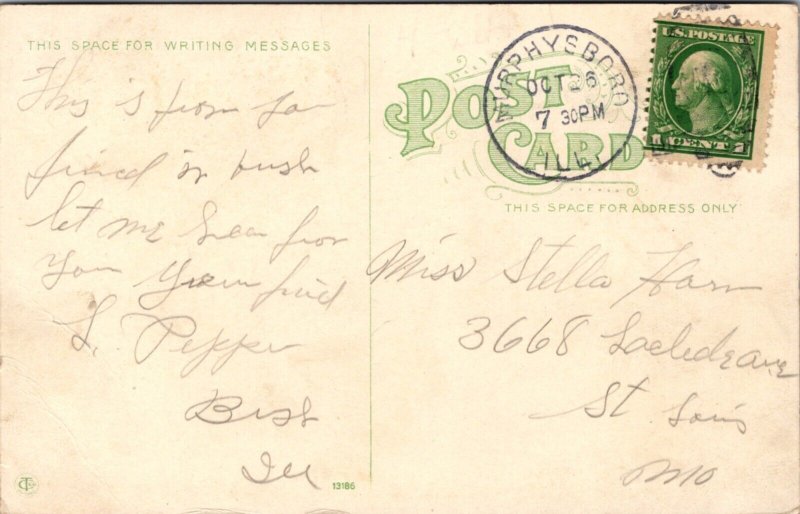 THIS SPACE FOR WRITING MESSAGES
This is from
in bush
let me hear from
you your frind
L. Pepper
Bush
Ill
13186
POST CARD
MURPHYSBORO
OCT 26
7 30PM
ILL.
U.S. POSTAGE
1 CENT 1
THIS SPACE FOR ADDRESS ONLY
Miss Stella Horn
3668 Laclede ave
St Louis
Mo